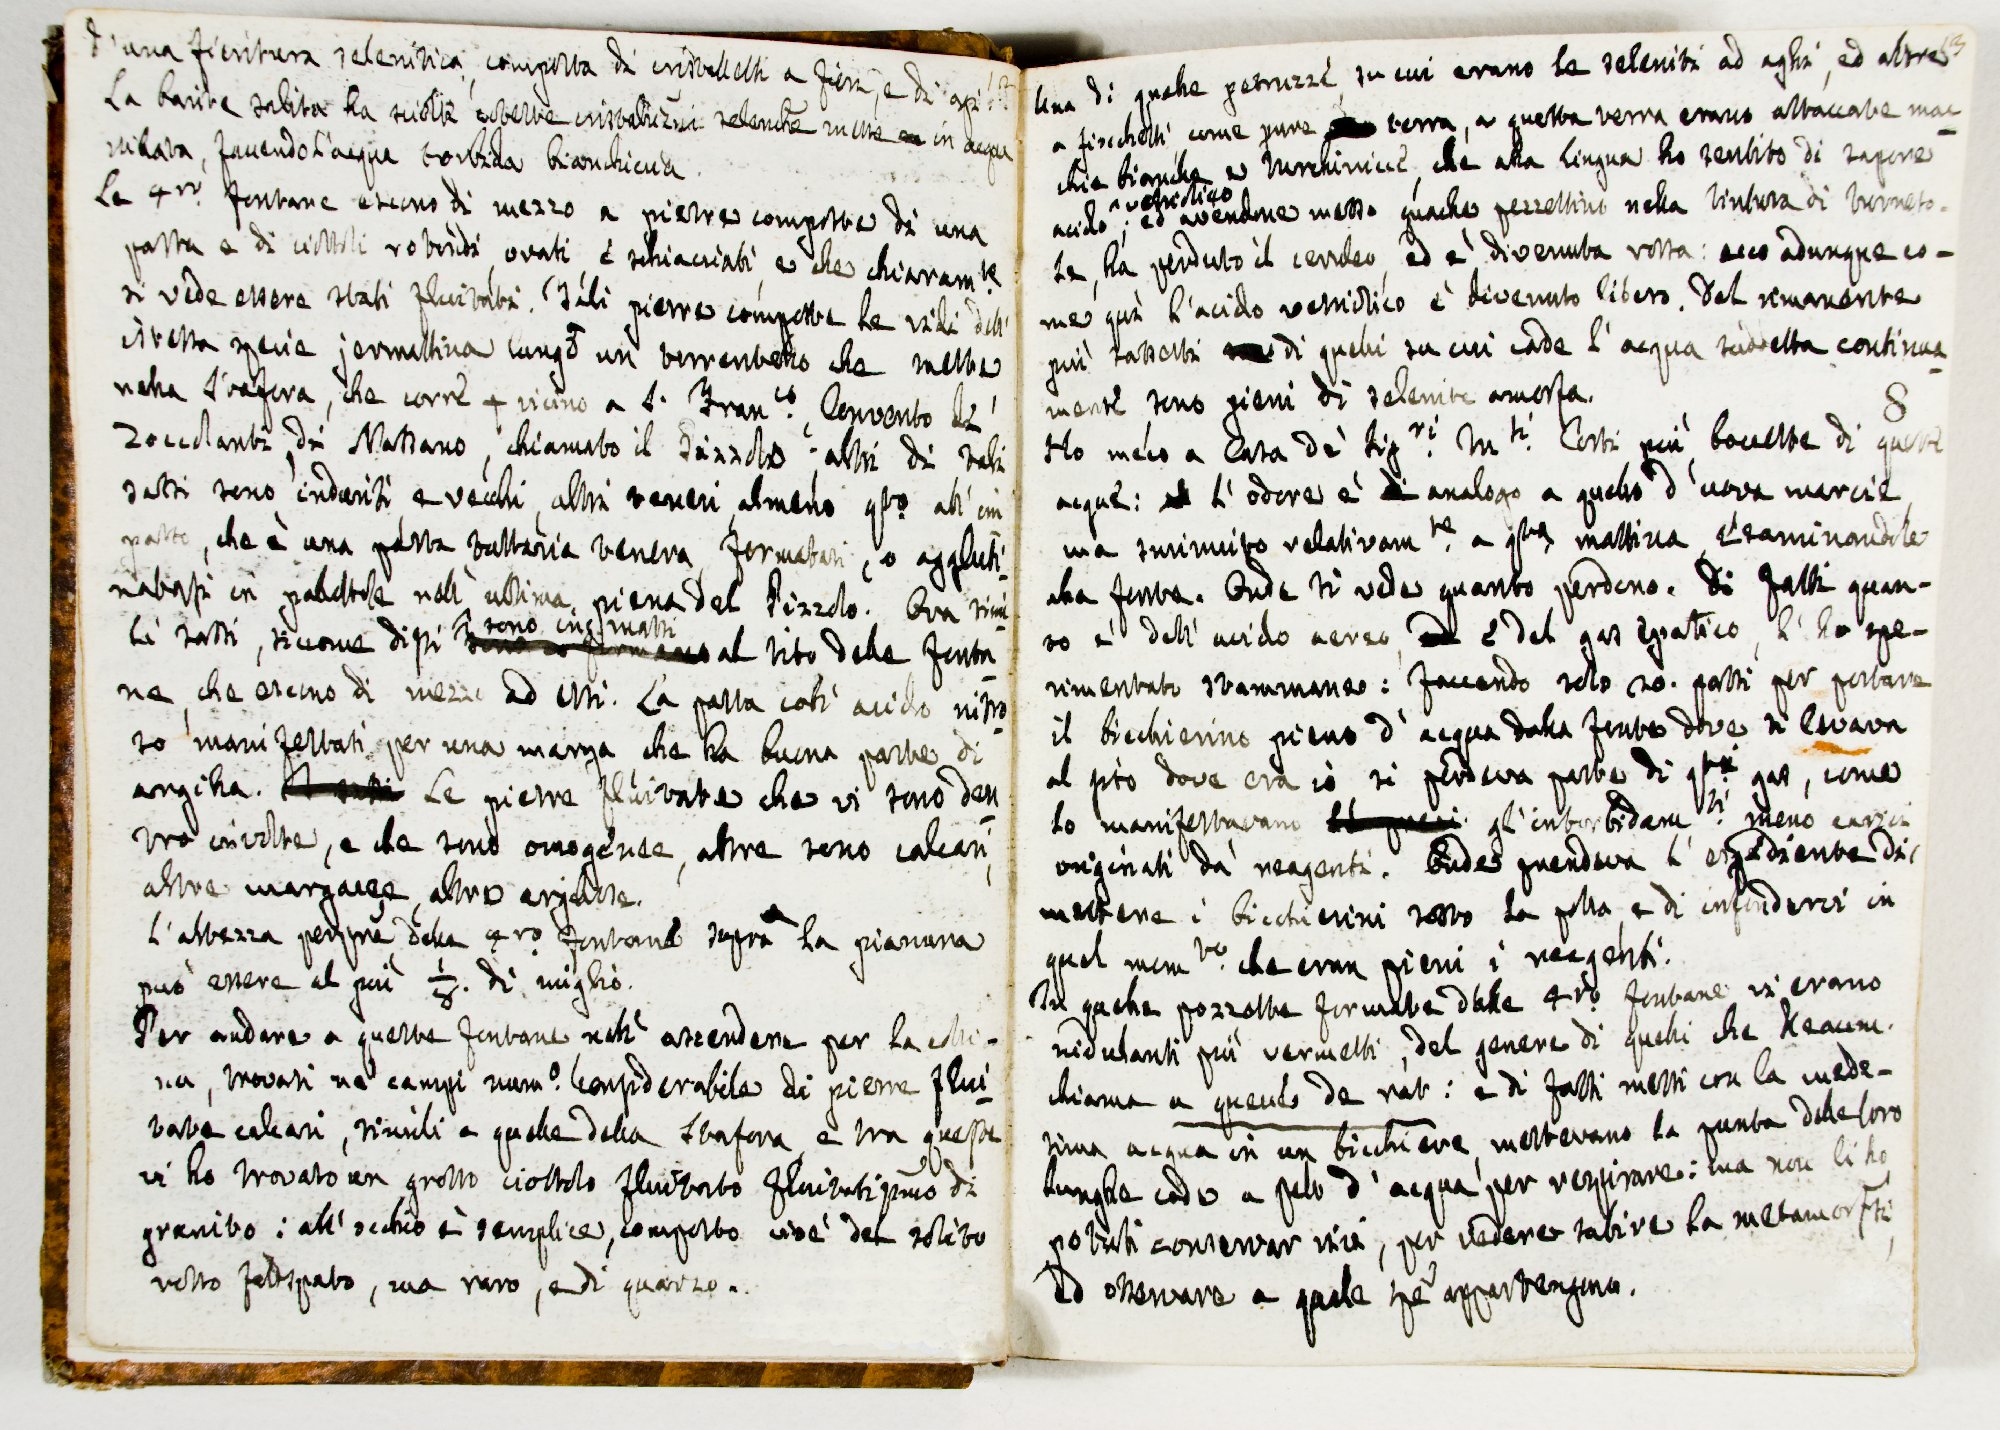 d'una fioritura selenitica, composta di cristalletti a fiori, e di
La barite salita ha sciolte coteste cristallizni selenitiche messe in acqua
stilata, facendo l'acqua torbida bianchiccia.
Le 4ro. fontane escono di mezzo a pietre composte di una
pasta e di ciottoli rotondi, ovati, e schiacciati, e che chiaramte.
si vede essere stati fluitati. Tali pietre composte le vidi dell'
istessa specie jermattina lungo un torrentello che mette
nella Stafora, che corre vicino a S. Franco. Convento di
Zoccolanti di Massano, chiamato il Pizzolo: altri di tali
sassi sono induriti e vecchi, altri teneri almeno qto. all'im
pasto, che è una pasta tuttavia tenera, formatasi, o aggluti-
natasi in pallottole nell'ultima piena del Pizzolo. Ora simi-
li sassi, siccome dissi sono ingemmati al sito delle fonta-
ne, che escono di mezzo ad essi. La pasta coll'acido nitro-
so manifestasi per una marga che ha buona parte di
argilla. Le pietre fluitate che vi sono den-
tro involte, e che sono omogenee, altre sono calcari,
altre margacee, altre argillose.
L'altezza perpre. delle 4ro. fontane sopra la pianura
può essere al più 1/8. di miglio.
Per andare a queste fontane nell'ascendere per la colli-
na, trovasi ne' campi numo. considerabile di pietre flui-
tate calcari, simili a quelle della Stafora, e tra queste
vi ho trovato un grosso ciottolo fluitato fluitatismo di
granito: all'occhio è semplice, composto cioè del solito
rosso feldspato, ma raro, e di quarzo.
13
Una di quelle petruzze, su cui erano le seleniti ad aghi, ed altre
a fiocchetti, come pure terra, a questa terra erano attaccate mac-
chie bianche e turchinicce, che alla lingua ho sentito di sapore
acido vetriolico; ed avendone messo qualche pezzettino nella tintura di torneso-
le, ha perduto il ceruleo, ed è divenuta rossa: ecco adunque co-
me qui l'acido vetriolico è divenuto libero. Del rimanente
più sassetti di quelli su cui cade l'acqua suddetta continua-
mente sono pieni di selenite amorfa.
8
Ho meco a Casa de' Sigri. Msi. Corti più boccette di queste
acque: L'odore è analogo a quello d'uova marcie
ma sminuito relativamte. a qta mattina esaminandole
alla fonte. Onde si vede quanto perdono. Di fatti quan-
to è dell'acido aereo, e del gas epatico, l'ho spe-
rimentato stammane: facendo solo 20. passi per portare
il bicchierino pieno d'acqua dalla fonte dove si levava
al sito dove era io si perdeva parte di qti gas, come
lo manifestavano gl'intorbidamti. meno carichi
originati da' reagenti. Onde prendeva l'espediente di
mettere i bicchierini sotto la polla e di infonderci in
quel momto. che eran pieni i reagenti.
In quelle pozzette formate dalle 4ro. fontane vi erano
nidulanti più vermetti, del genere di quelli che Reaum.
chiama a queue de rat: e di fatti messi con la mede-
sima acqua in un bicchiere, mettevano la punta delle loro
lunghe code a pelo d'acqua per respirare: ma non li ho
potuti conservar vivi, per vedere subire la metamorfosi,
ed osservare a quale spe appartengono.